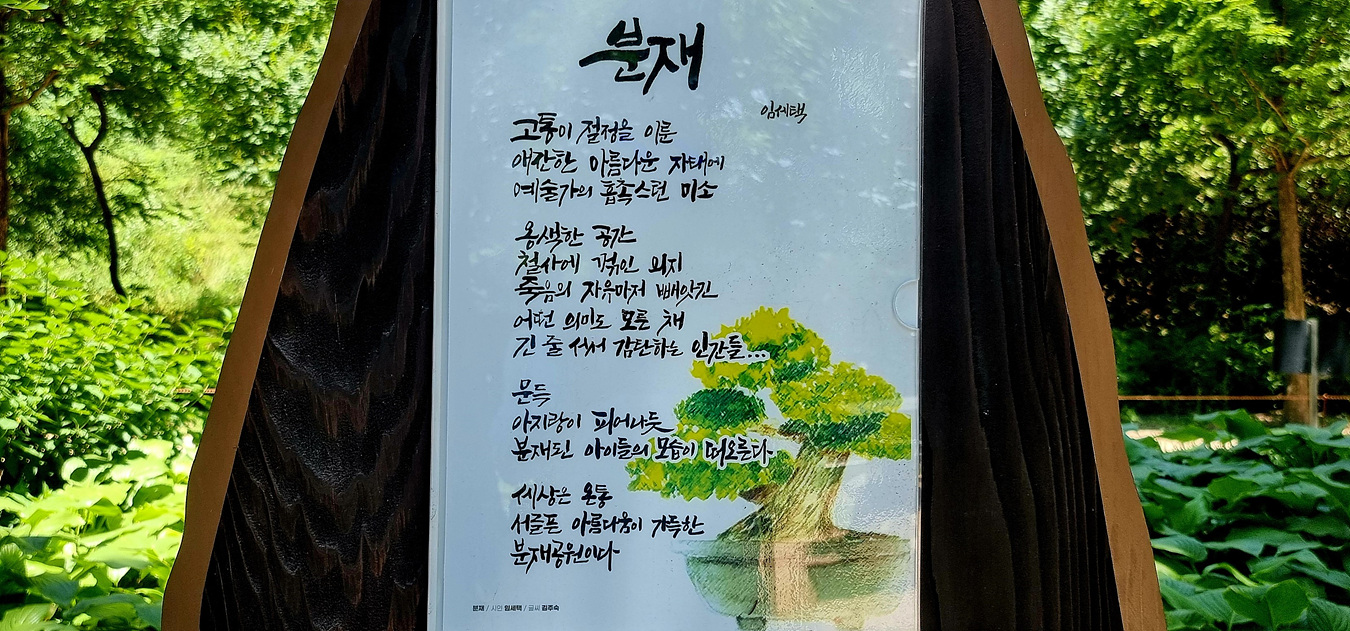 분재
임세택
고통이 절정을 이룬
애잔한 아름다운 자태에
예술가의 흡족스런 미소
옹색한 공간
철사에 꺾인 의지
죽음의 자유마저 빼앗긴
어떤 의미도 모른 채
긴 줄 서서 감탄하는 인간들...
문득
아지랑이 피어나듯
분재된 아이들의 모습이 떠오른다
세상은 온통
서글픈 아름다움이 가득한
분재공원이다
분재 / 시민 임세택 / 글씨 김주숙